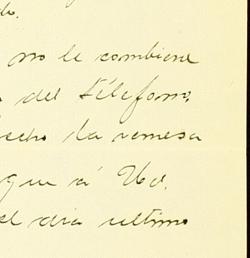 do.
no le combiene
del teléfono
echo la remesa
que á Ud.
el dia ultimo